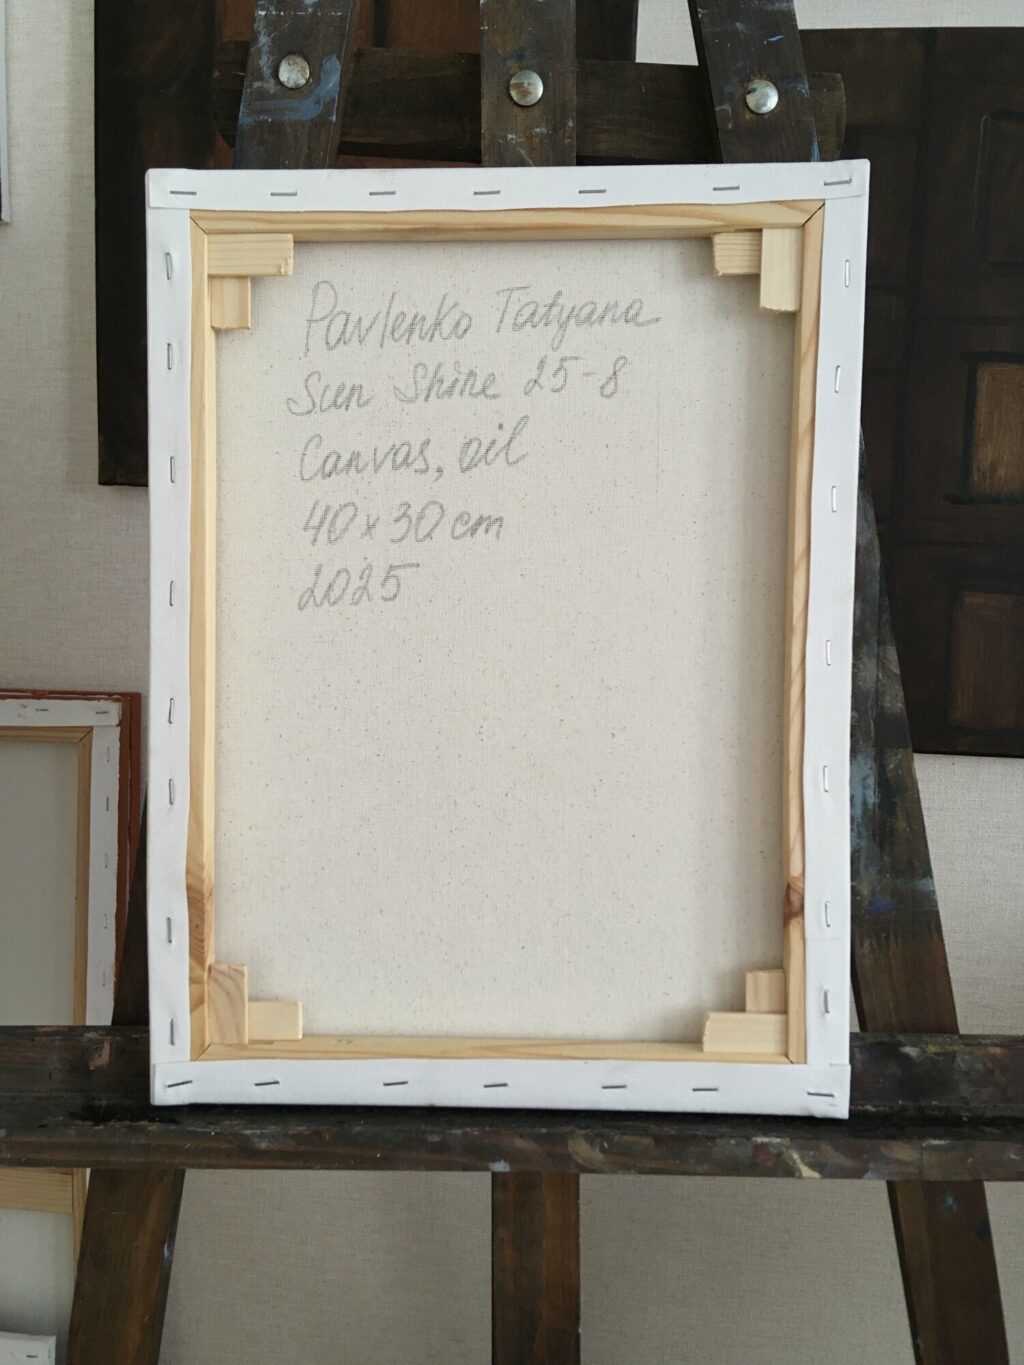 Pavlenko Tatyana
Sun Shine 25-8
Canvas, oil
40x30 cm
2025